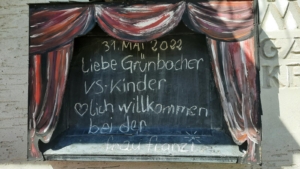 31. MAI 2022
Liebe Grünbacher
VS-Kinder
♡lich willkommen
bei der